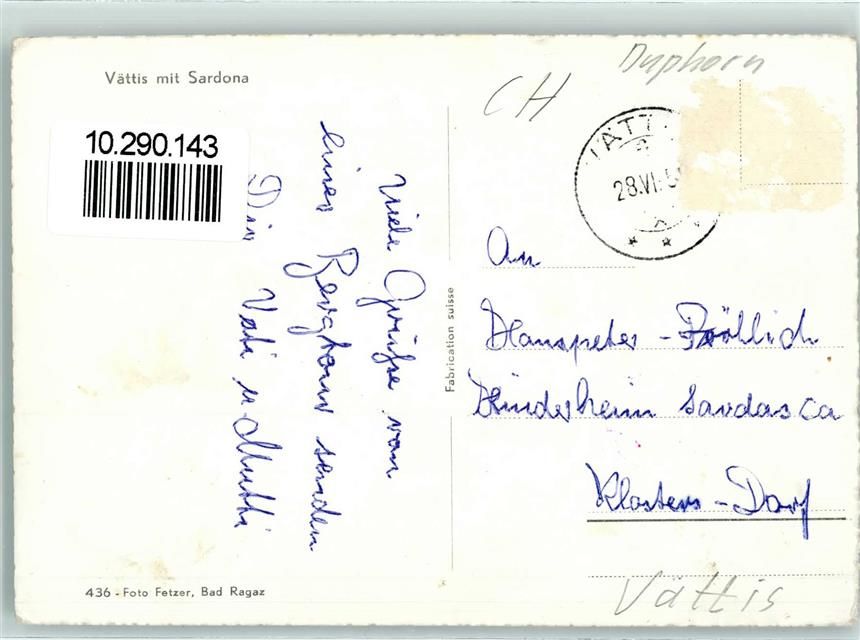 Vättis mit Sardona
10.290.143
Viele Grüße von
einer Bergtour senden
Dir
Vati u Mutti
436 - Foto Fetzer, Bad Ragaz
Fabrication suisse
CH
Duphorn
VÄTT
28.VI.5
An
Hanspeter - Fröhlich
Kinderheim Sardasca
Klosters - Dorf
Vättis